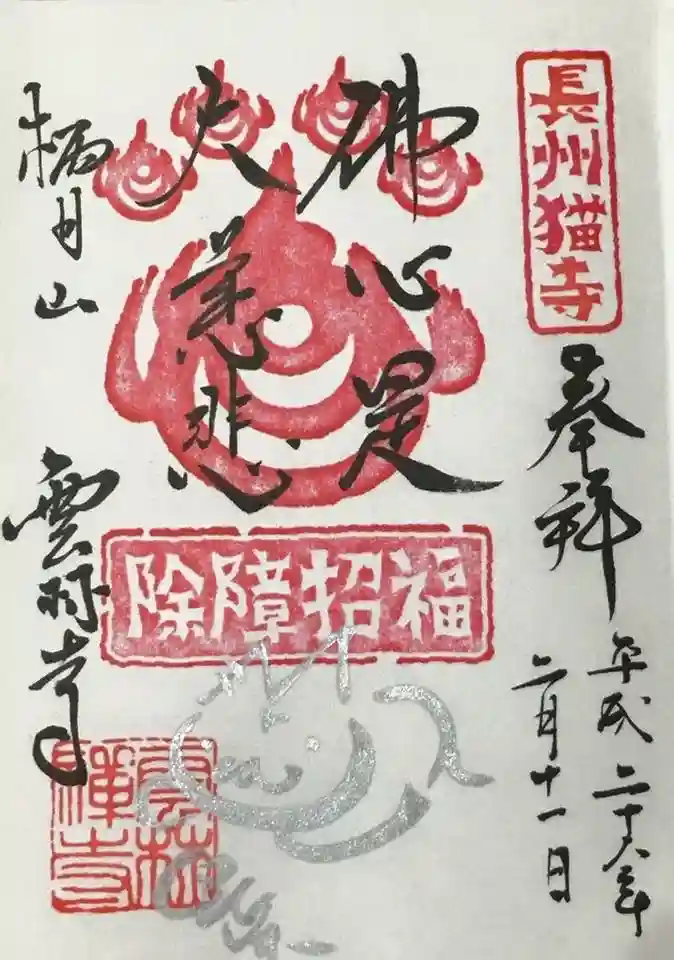 長州猫寺
奉拝
平成二十八年
二月十一日
佛心是
大慈悲
除障招福
栖月山
雲林寺
雲林
禪寺